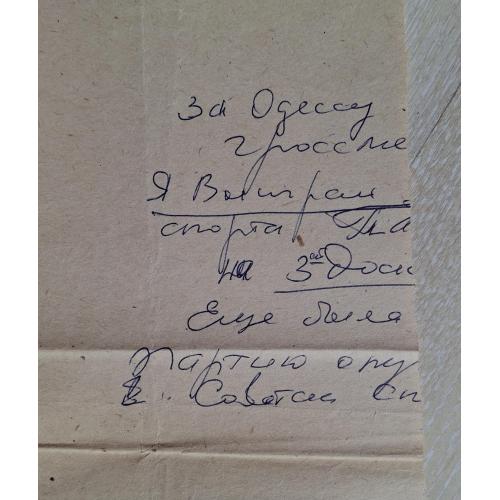 За Одессу
гроссме
Я Выиграл
спорта
на 3ей Доск
Еще была
Партию опу
в. Советск сп